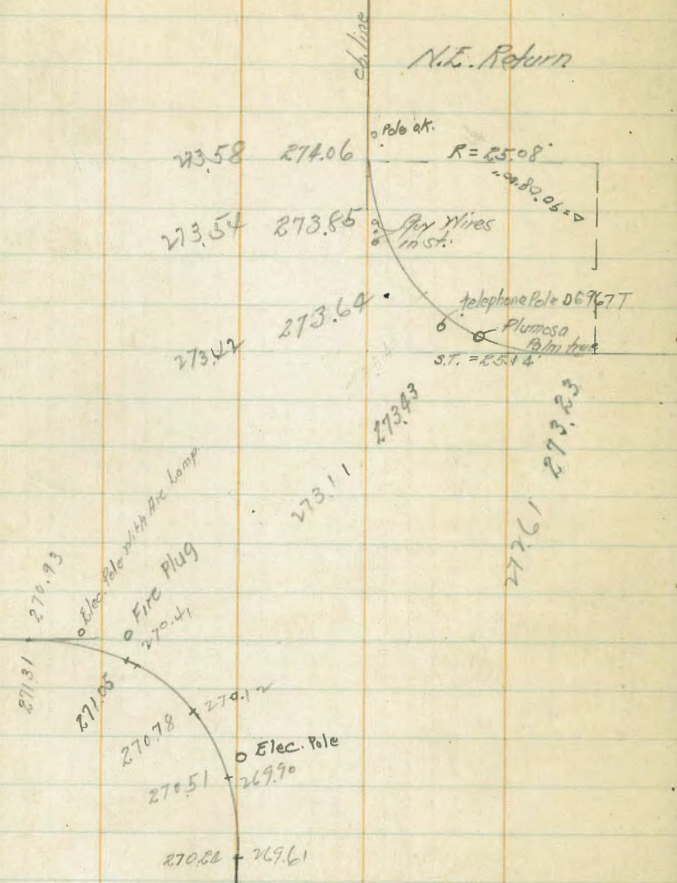 cb. line
N.E. Return
Pole o.k.
273.58 274.06 R = 25.08'
Δ=90.08'
273.54 273.85 Guy Wires
in st.
273.64 telephone Pole D6967T
Plumosa
Palm tree
273.42 S.T. = 25.14'
273.43 273.23
273.11 272.61
Elec. Pole With Arc Lamp
270.93 Fire Plug
270.41
271.31 271.05
270.78 270.12
Elec. Pole
270.51 269.90
270.24 269.61